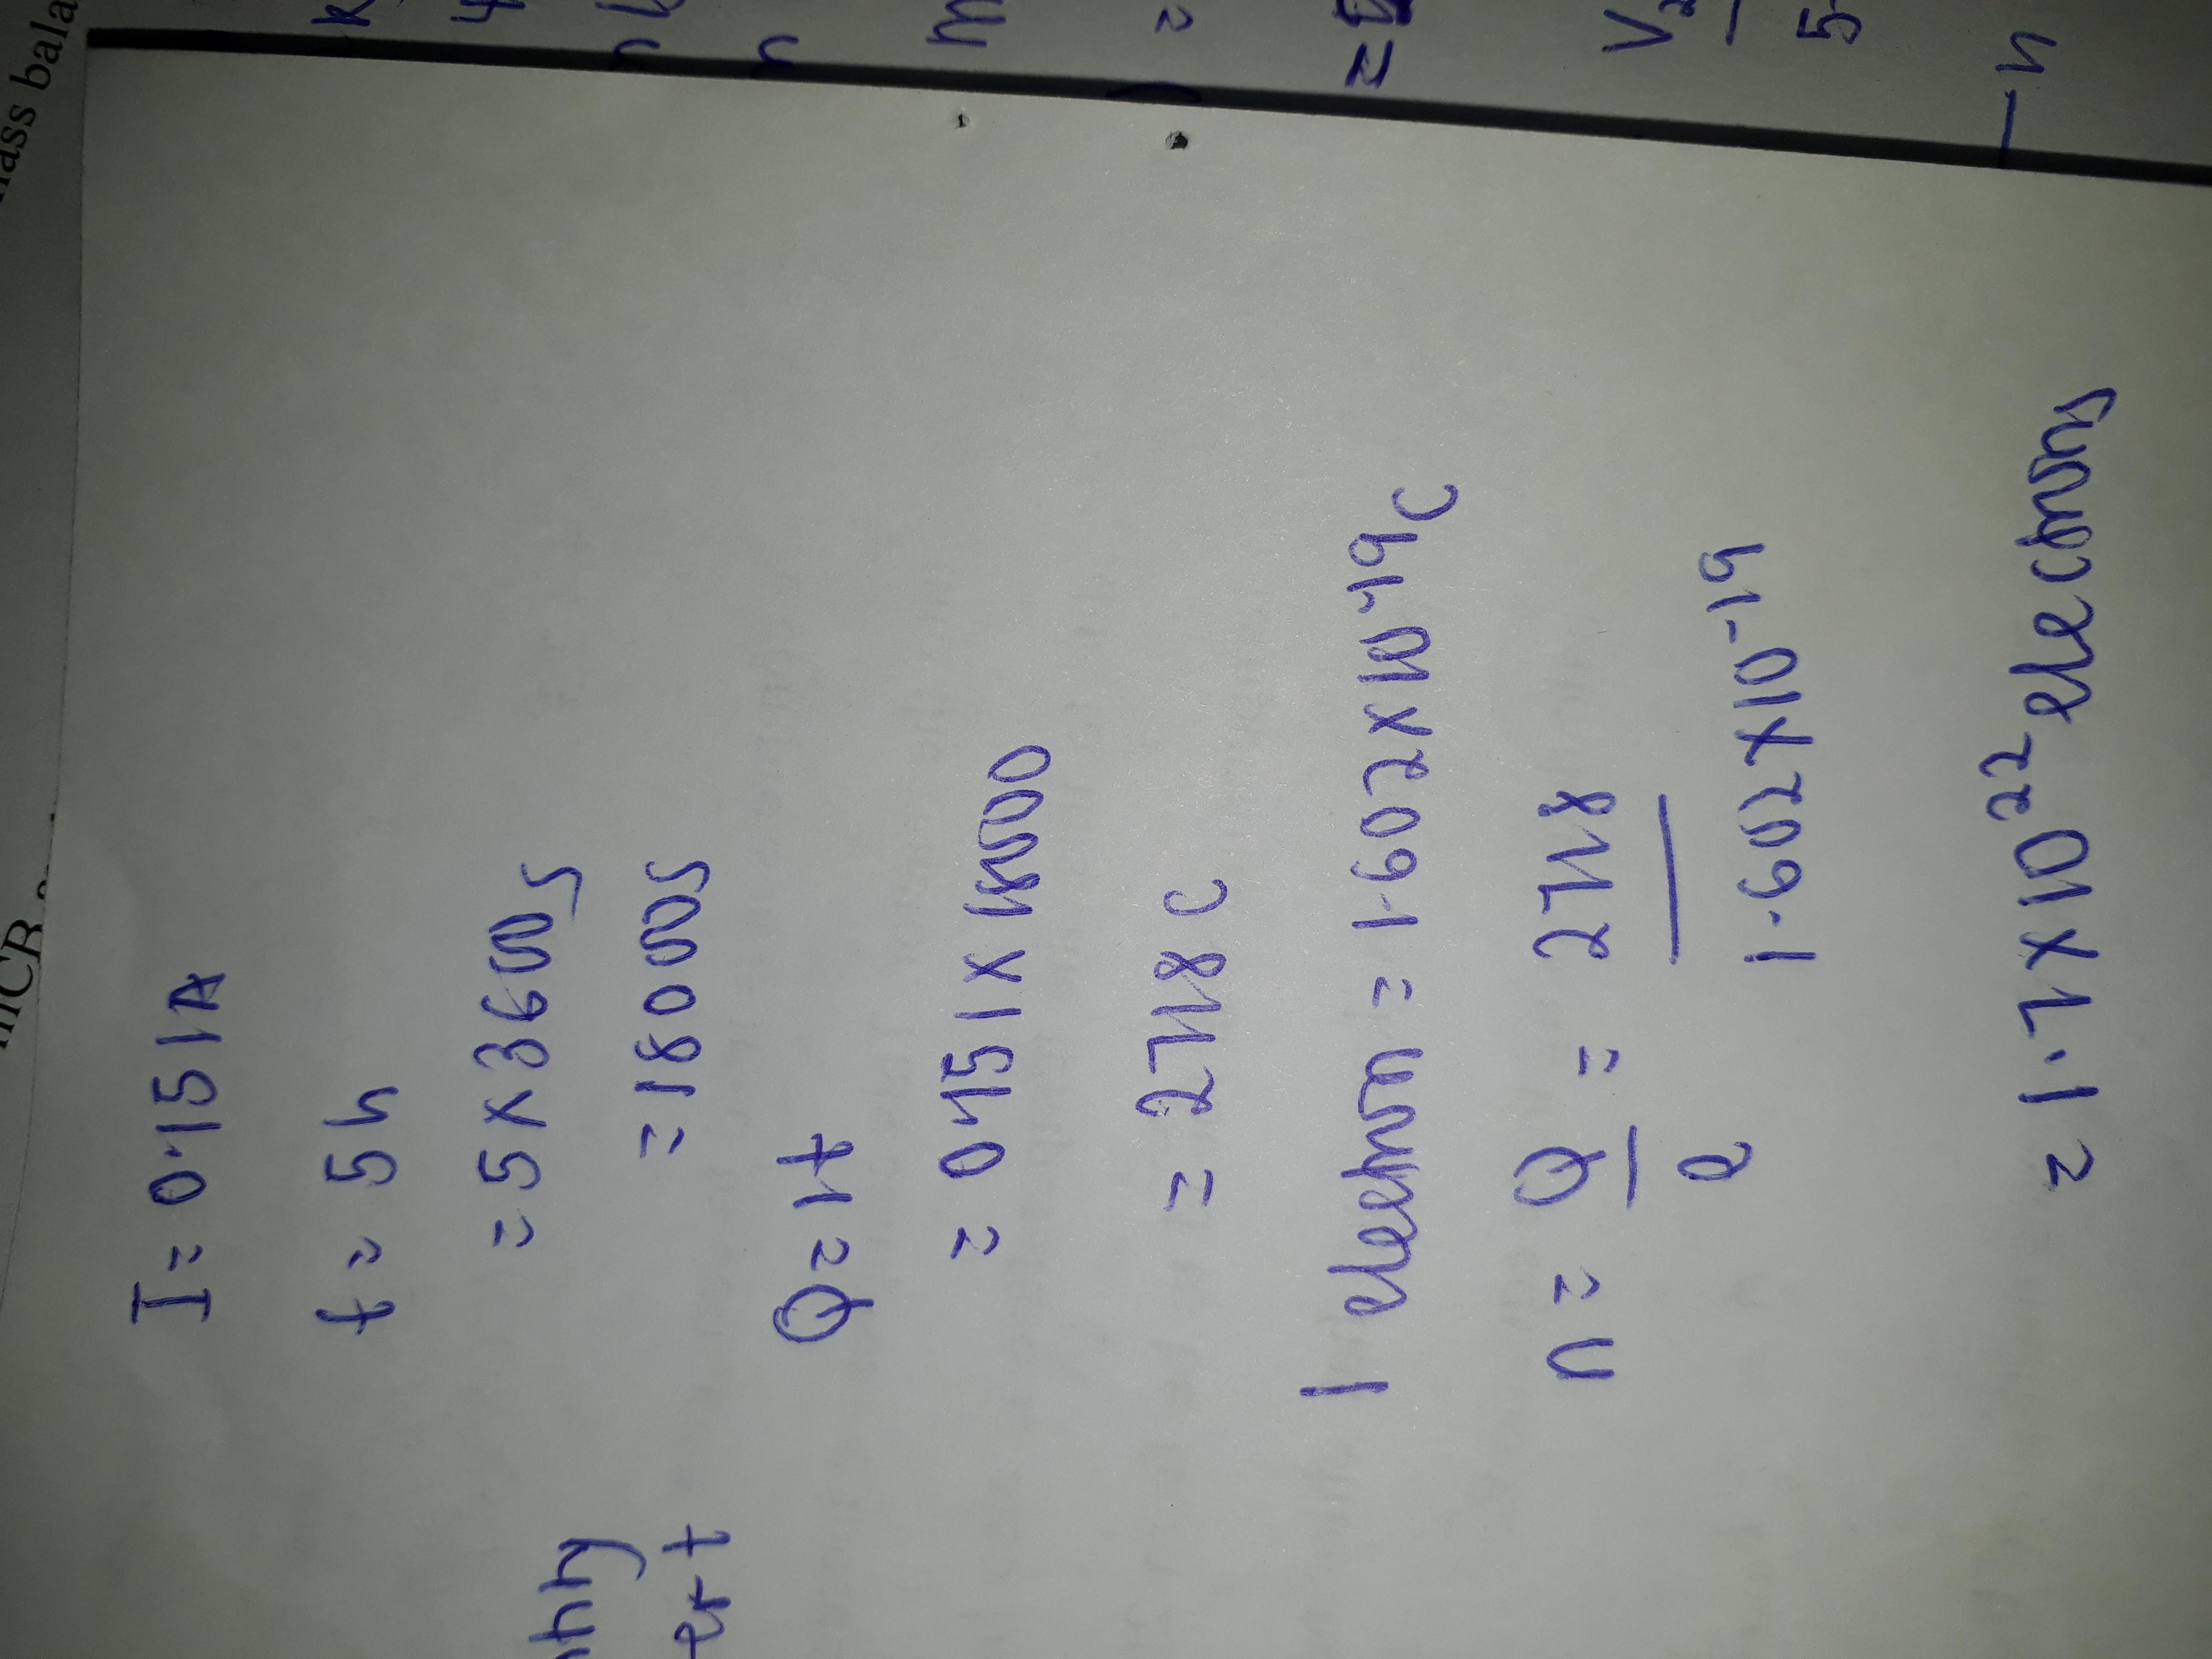 I = 0.151A
t = 5h
= 5 x 3600s
= 18000s
Q = It
= 0.151 x 18000
= 2718 C
1 electron = 1.602 x 10^-19 C
n = Q/e = 2718/1.602 x 10^-19
= 1.7 x 10^22 electrons